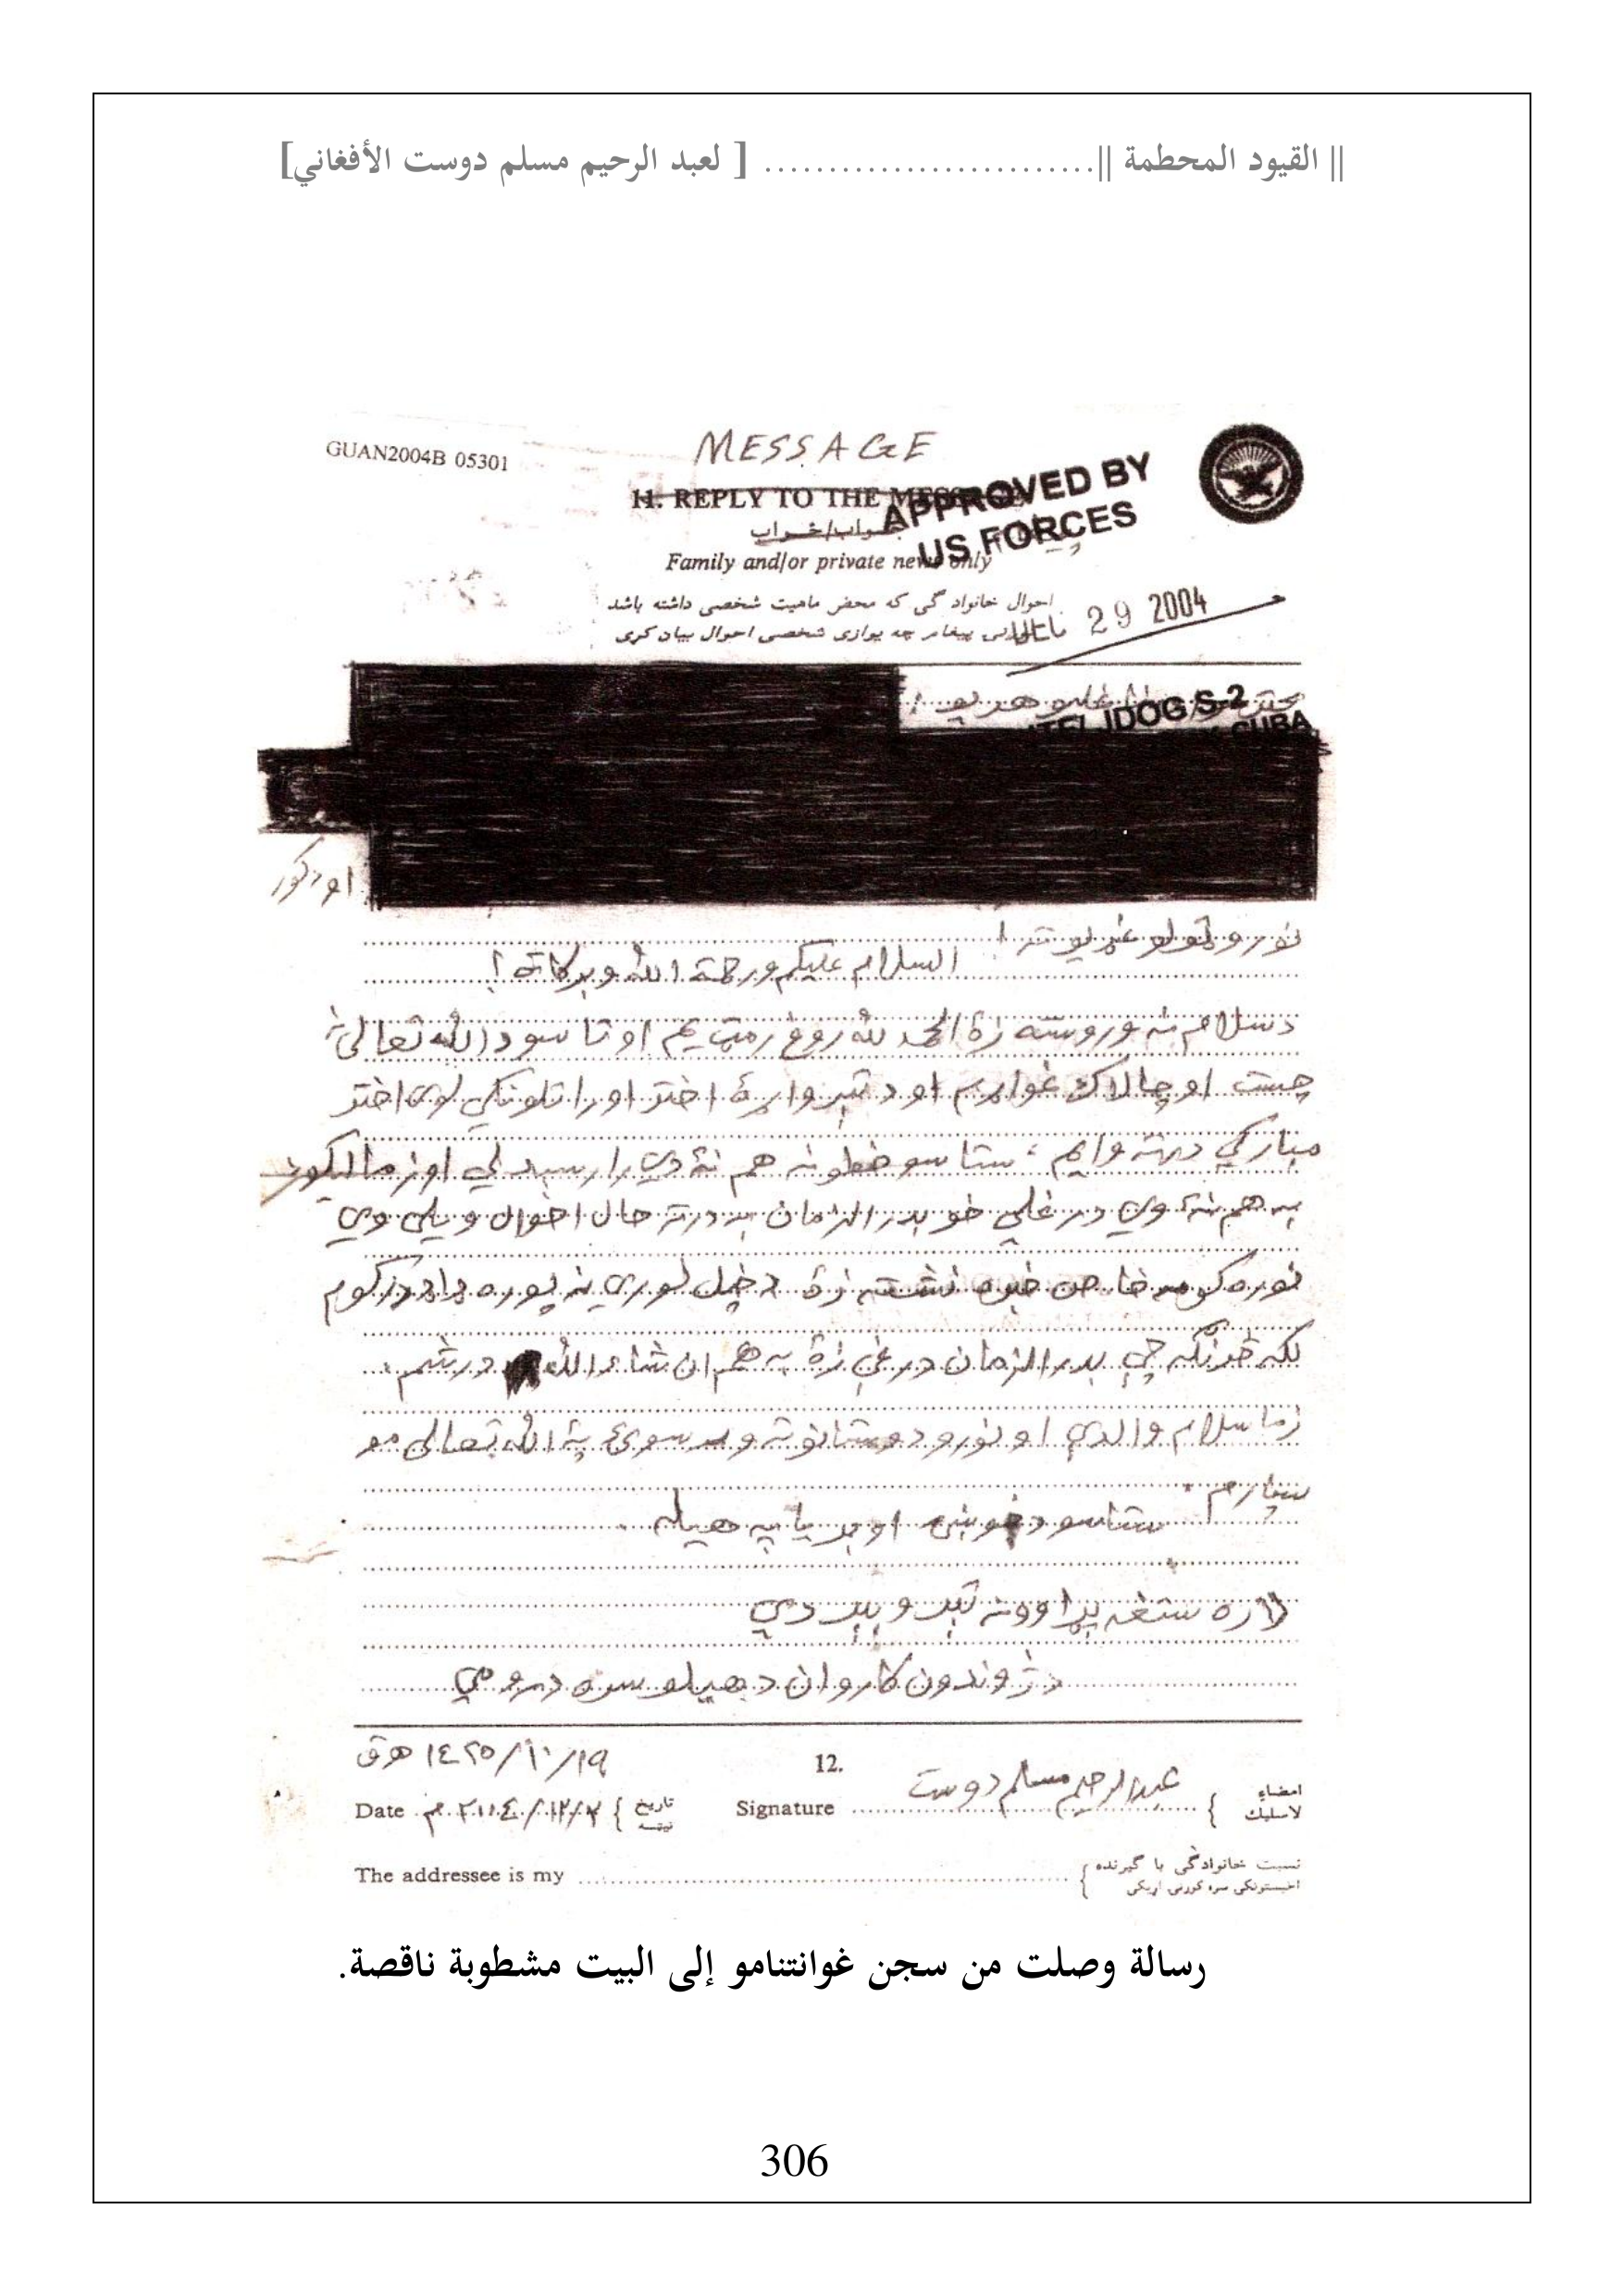 || القيود المحطمة ||.......................... [ لعبد الرحيم مسلم دوست الأفغاني]
GUAN2004B 05301
MESSAGE
11. REPLY TO THE MESS
APPROVED BY
US FORCES
جواب/خواب
Family and/or private news only
احوال خانوادگی که محض ماهیت شخصی داشته باشد
29 2004
پیغام چه یوازی شخصی احوال بیان کری
JDOG S-2
CUBA
او د کور
نورو ټولو غړيو ته!
السلام عليكم ورحمة الله وبركاته!
د سلام نه وروسته زۀ الحمد لله روغ رمټ يم او تاسو د الله تعالى نه
چست او چالاک غواړم او د تېر واړۀ اختر او راتلونکي لوى اختر
مبارکي درته وايم، ستاسو خطونه هم نۀ دي را رسېدلي او زما ليکونه
به هم نۀ وي درغلي خو بدر الزمان به درته حال احوال ويلى وي
نوره کومه خاصه خبره نشته زۀ د خپل لوري نه پوره ډاډ درکوم
لکه څرنګه چې بدر الزمان درغى زۀ به هم ان شاء الله درشم.
زما سلام والدې او نورو دوستانو ته ورسوئ په الله تعالى مو
سپارم.
ستاسو د خوښۍ او بريا په هيله
لاره ستغه پړاوونه تېر و بېر دي
د ژوندون کاروان د هيلو سره درومي
١٤٢٥/١٠/١٩ هـ ق
12.
Date ٢٠٠٤/١٢/٢ م } تاريخ نېټه
Signature عبدالرحيم مسلم دوست } امضاء لاسليك
The addressee is my } نسبت خانوادگی با گیرنده
اخیستونکی سره کورنی اړیکی
رسالة وصلت من سجن غوانتنامو إلى البيت مشطوبة ناقصة.
306